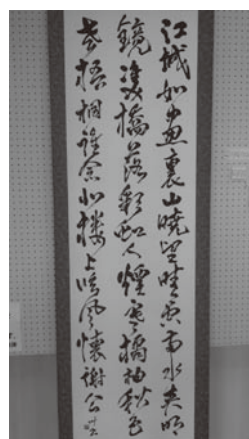 江城如畫裏山曉望晴空兩水夾明
鏡雙橋落彩虹人煙寒橘柚秋色
老梧桐誰念北樓上臨風懷謝公